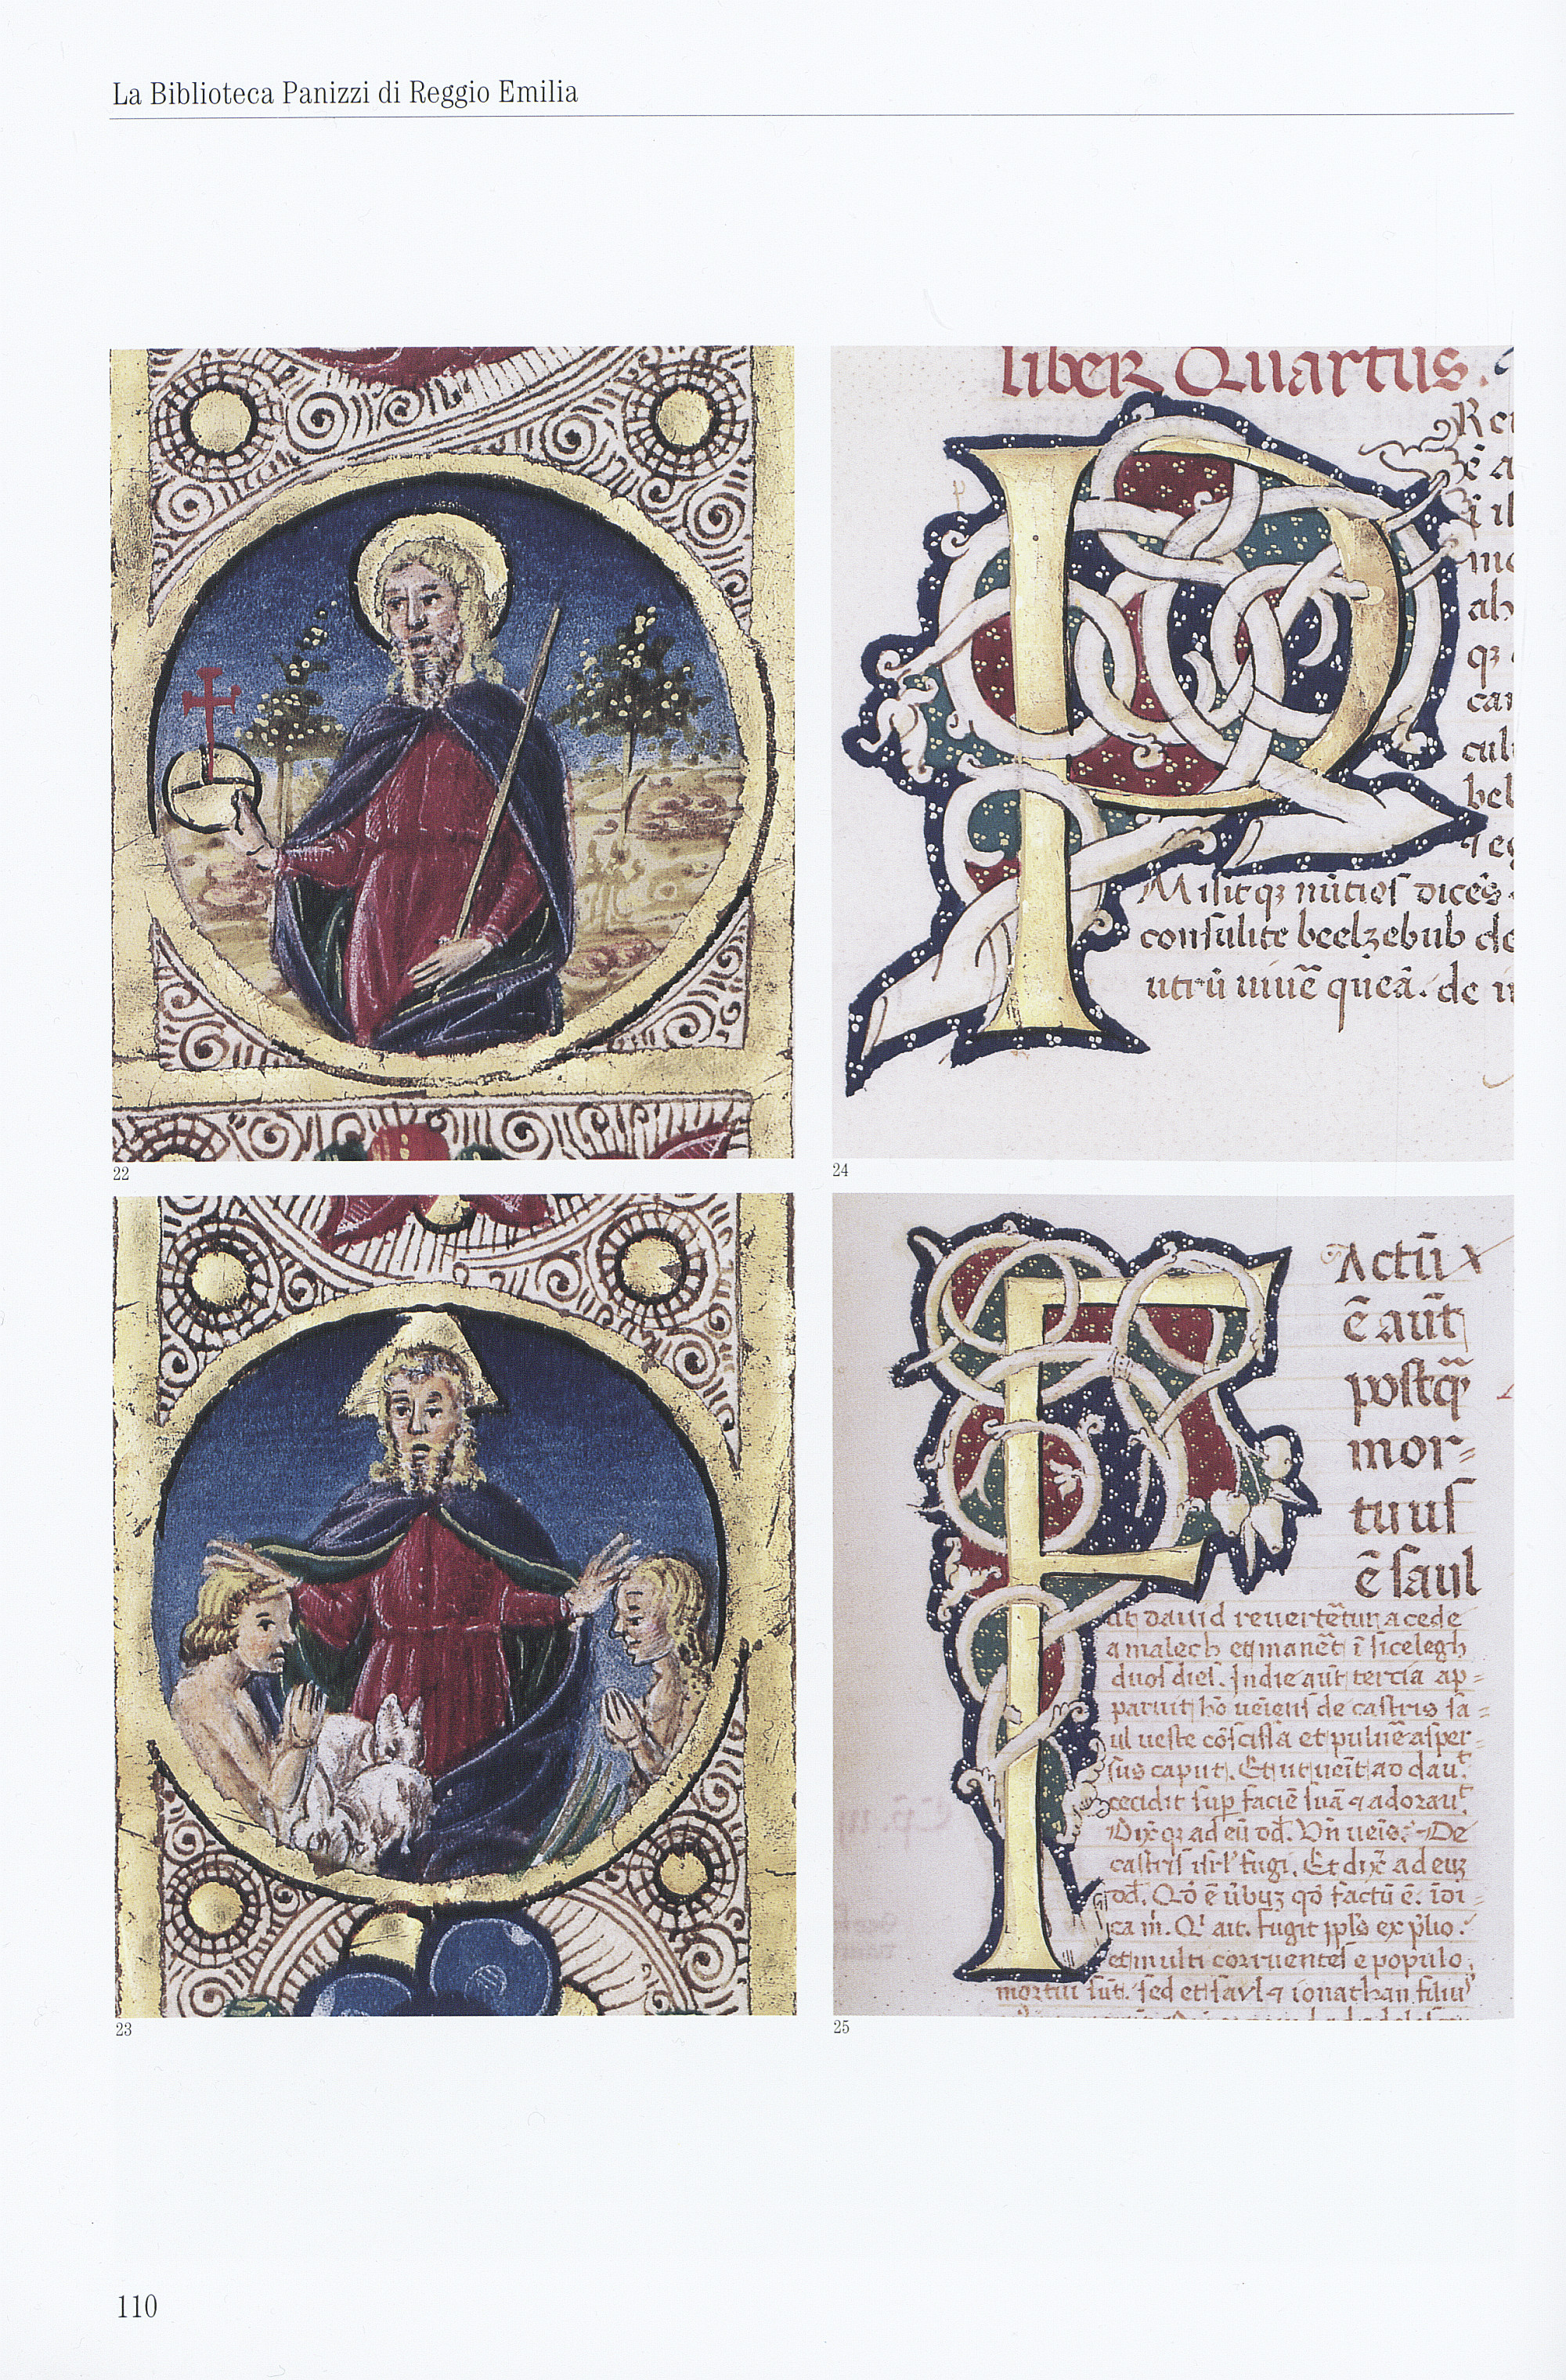 La Biblioteca Panizzi di Reggio Emilia
22
liber Quartus.
Misitqꝫ nūtios dicēs
consulite beelzebub de
utrū uiuē queā. de i
24
23
Actū
ē aūt
postq̃
mor=
tuus
ē saul
ut dauid reuertẽtur a cede
amalech et manẽt ī sicelegh
duos dies. Indie aūt tertia ap=
paruit hō ueiens de castris sa=
ul ueste cōscissa et puluē asper=
sus caput. Et ut ueīt ad dau
cecidit sup faciē suā ⁊ adorau
Dixqꝫ ad eū dd. Vn ueis. De
castris isrl fugi. Et dix ad euꝫ
dd. Qd ē ūbuꝫ qd factū ē. īdi=
ca m. Q ait. fugit ppls ex plio.
et multi corruentes e populo
mortui sūt. sed et saul ⁊ ionathan filiu
25
110